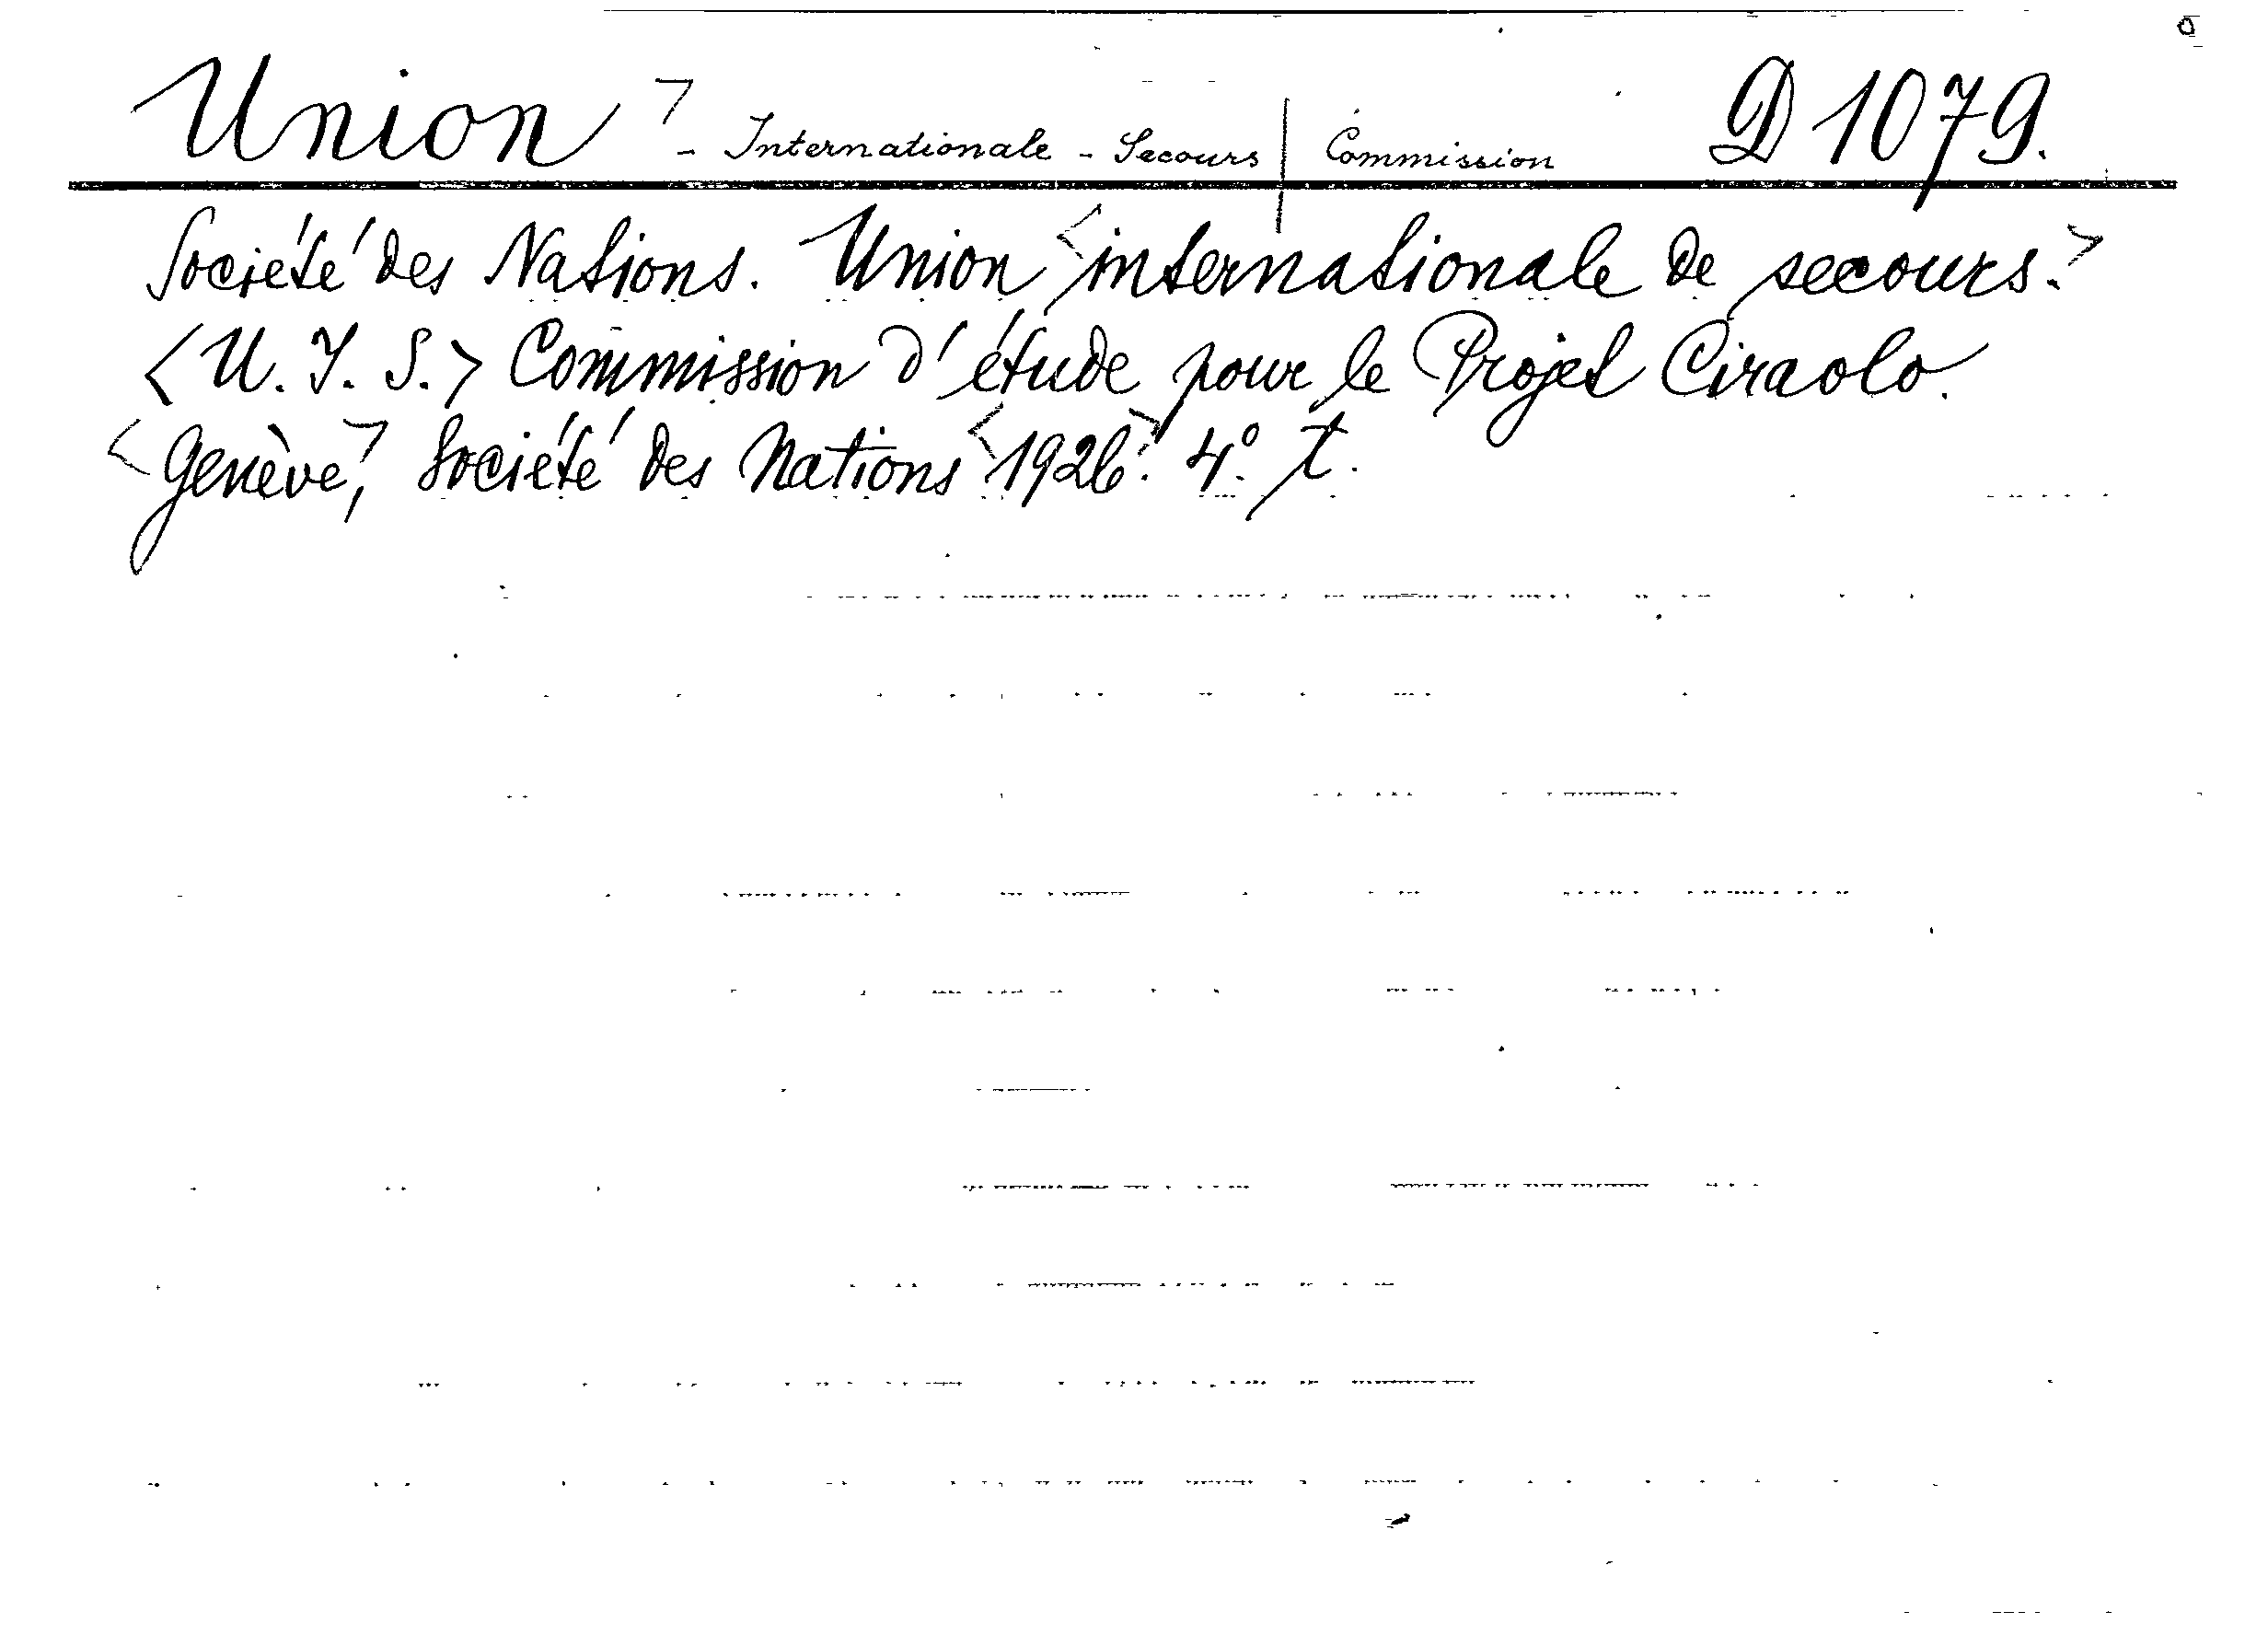 Union - Internationale - Secours | Commission D 1079.
Société des Nations. Union <internationale de secours.>
<U. I. S.> Commission d'étude pour le Projet Ciraolo.
<Genève,> Société des Nations <1926.> 4°. t.